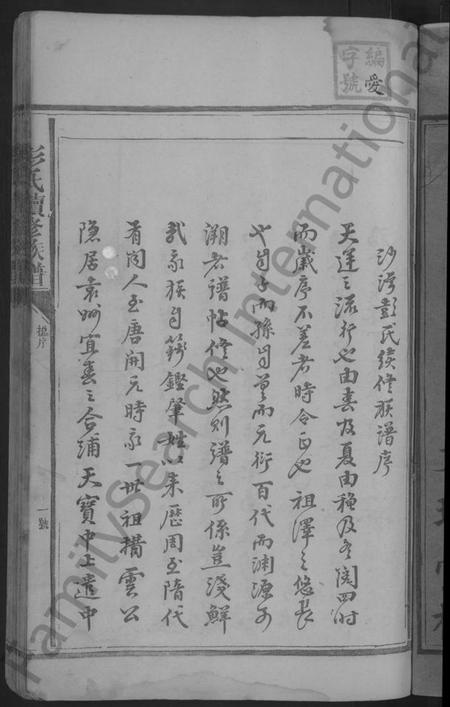 編愛
字號
沙灣彭氏續修族譜序
天運之流行也由春及夏由秋及冬閱四時
而歲序不差者時令正也祖澤之悠長
也自子而孫自曾而元衍百代而淵源可
溯者譜帖修也然則譜之所係豈淺鮮
哉我族自籛鏗肇姓以來歷周至隋代
有聞人至唐開元時我一世祖構雲公
隱居袁州宜春之合浦天寶中上遣中
彭氏續修族譜
序
一號
FamilySearch International